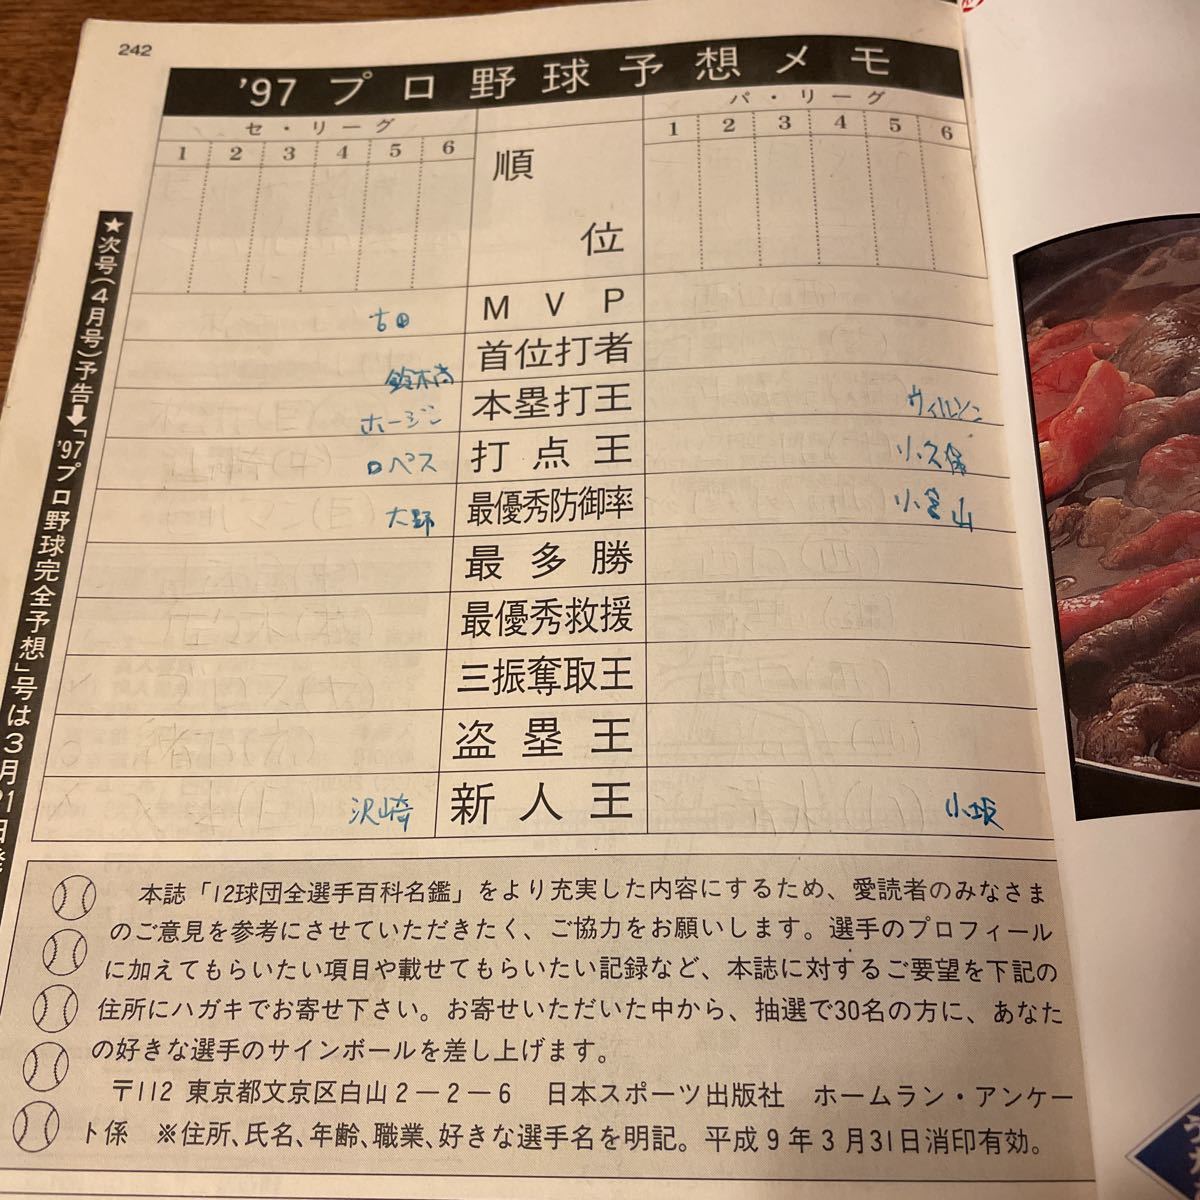 242
'97 プロ野球予想メモ
セ・リーグ パ・リーグ
1 2 3 4 5 6 順位 1 2 3 4 5 6
古田 MVP
鈴木尚 首位打者
ホージー 本塁打王 ウィルソン
ロペス 打点王 小久保
大野 最優秀防御率 小宮山
最多勝
最優秀救援
三振奪取王
盗塁王
沢崎 新人王 小坂
★次号(4月号)予告➡「'97プロ野球完全予想」号は3月
本誌「12球団全選手百科名鑑」をより充実した内容にするため、愛読者のみなさま
のご意見を参考にさせていただきたく、ご協力をお願いします。選手のプロフィール
に加えてもらいたい項目や載せてもらいたい記録など、本誌に対するご要望を下記の
住所にハガキでお寄せ下さい。お寄せいただいた中から、抽選で30名の方に、あなた
の好きな選手のサインボールを差し上げます。
〒112 東京都文京区白山2－2－6 日本スポーツ出版社 ホームラン・アンケー
ト係 ※住所、氏名、年齢、職業、好きな選手名を明記。平成9年3月31日消印有効。